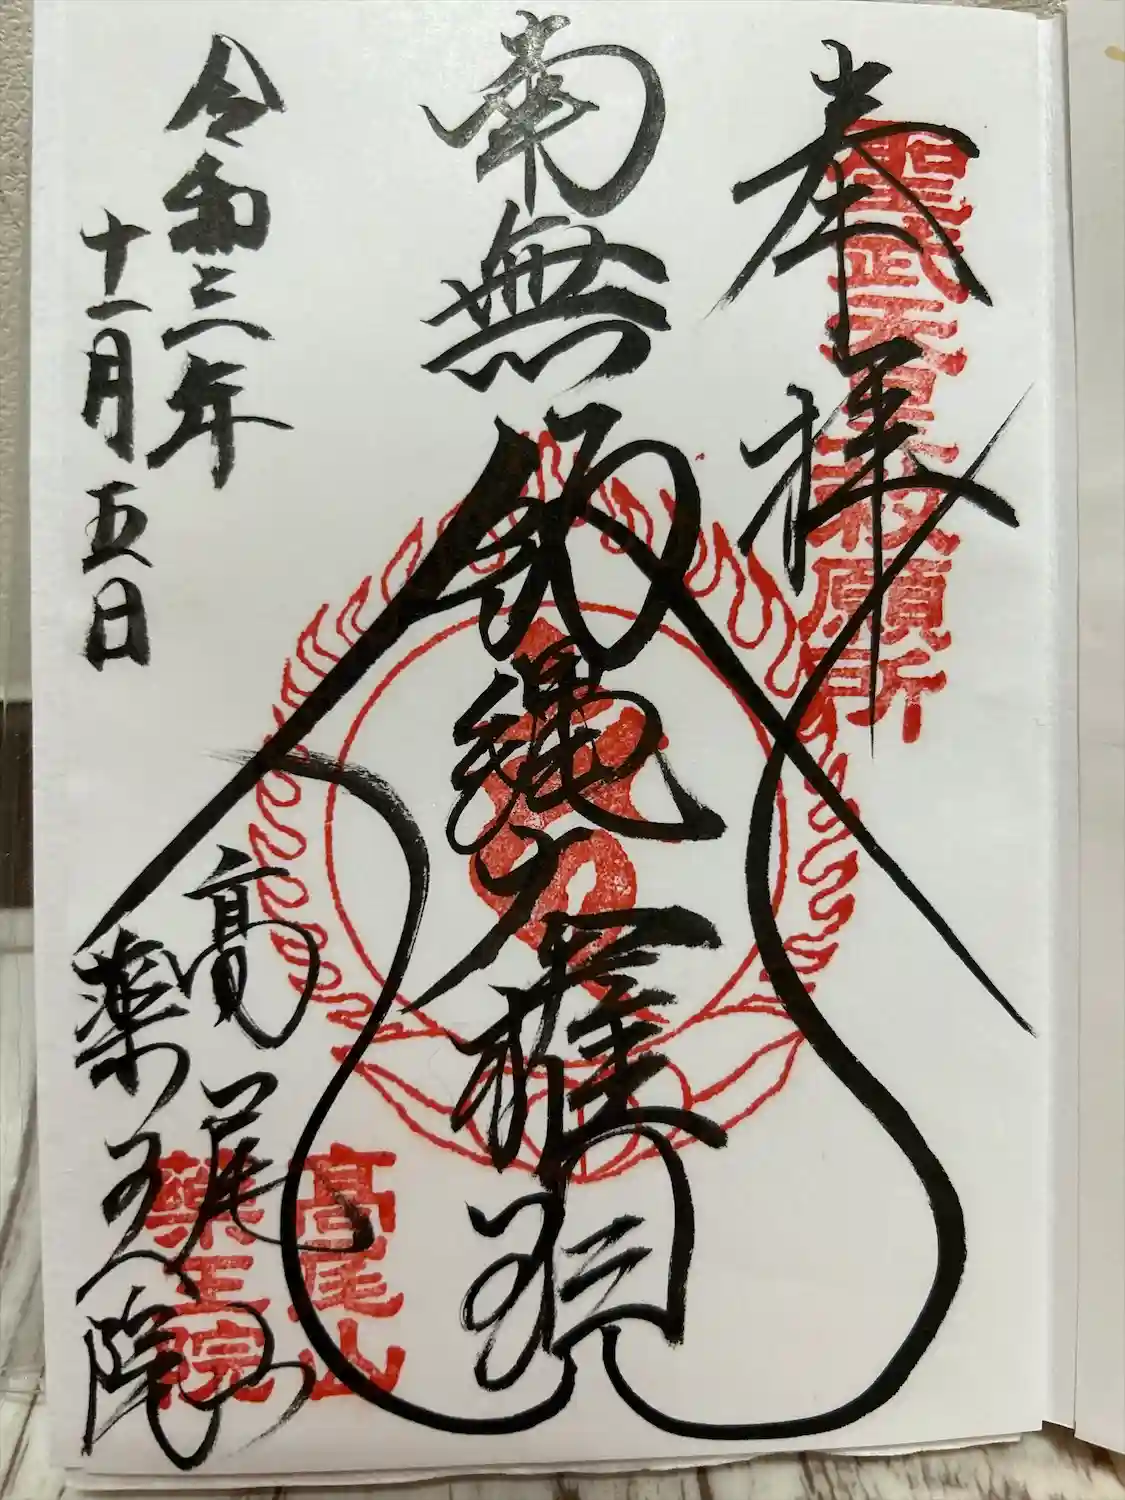 奉拝
聖武天皇敕願所
南無飯縄大權現
令和三年
十一月五日
高尾山
薬王院
高尾山
藥王院